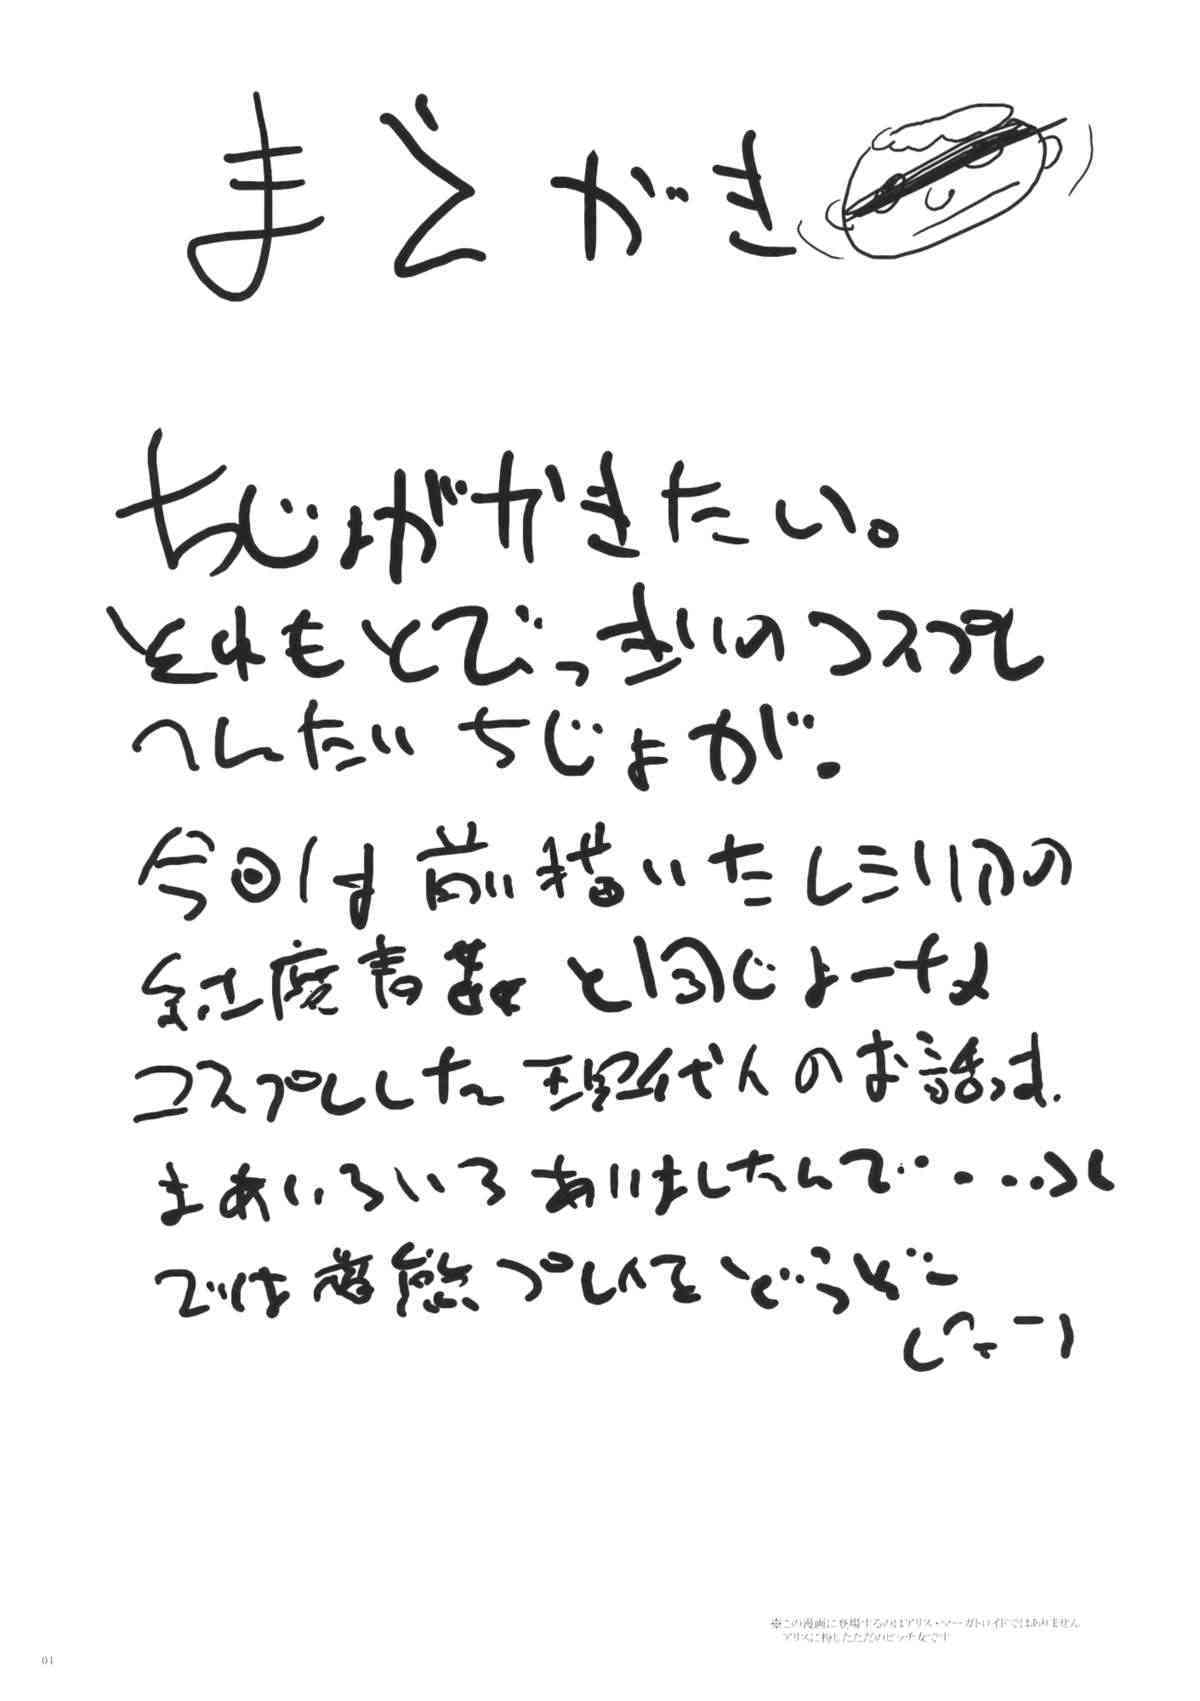 まえがき
ちじょがかきたい。
それもとびっきりのコスプレ
へんたいちじょが。
今回は前描いたレミリアの
純度青姦と同じよーな
コスプレした現代人のお話っす.
まあいろいろありましたんで・・・・・
では プレイをどうぞー
※この漫画に登場するのはアリス・マーガトロイドではありません
アリスに扮したただのビッチ女です
01